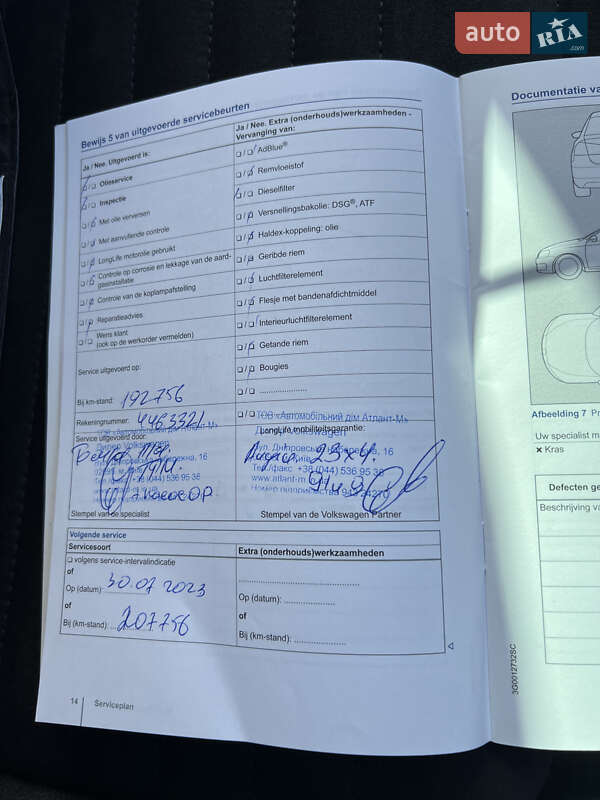 auto RIA.com
Bewijs 5 van uitgevoerde servicebeurten
Ja / Nee. Uitgevoerd is:
Olieservice
Inspectie
Met olie verversen
Met aanvullende controle
LongLife motorolie gebruikt
Controle op corrosie en lekkage van de aard-
gasinstallatie
Controle van de koplampafstelling
Reparatieadvies
Wens klant
(ook op de werkorder vermelden)
Service uitgevoerd op:
Bij km-stand: 192756
Rekeningnummer: 4463321
Service uitgevoerd door:
Stempel van de specialist
Ja / Nee. Extra (onderhouds)werkzaamheden -
Vervanging van:
AdBlue®
Remvloeistof
Dieselfilter
Versnellingsbakolie: DSG®, ATF
Haldex-koppeling: olie
Geribde riem
Luchtfilterelement
Flesje met bandenafdichtmiddel
Interieurluchtfilterelement
Getande riem
Bougies
......................
ТОВ «Автомобільний дім Атлант-М»
LongLife mobiliteitsgarantie:
вул. Дніпровська набережна, 16
Тел./факс +38 (044) 536 95 38
www.atlant-m
Stempel van de Volkswagen Partner
Volgende service
Servicesoort
volgens service-intervalindicatie
of
Op (datum): 30.07 2023
of
Bij (km-stand): 207756
Extra (onderhouds)werkzaamheden
Op (datum): ....................
of
Bij (km-stand): ....................
14
Serviceplan
Documentatie va
Afbeelding 7
Uw specialist m
× Kras
Defecten ge
Beschrijving va
3G0012732SC